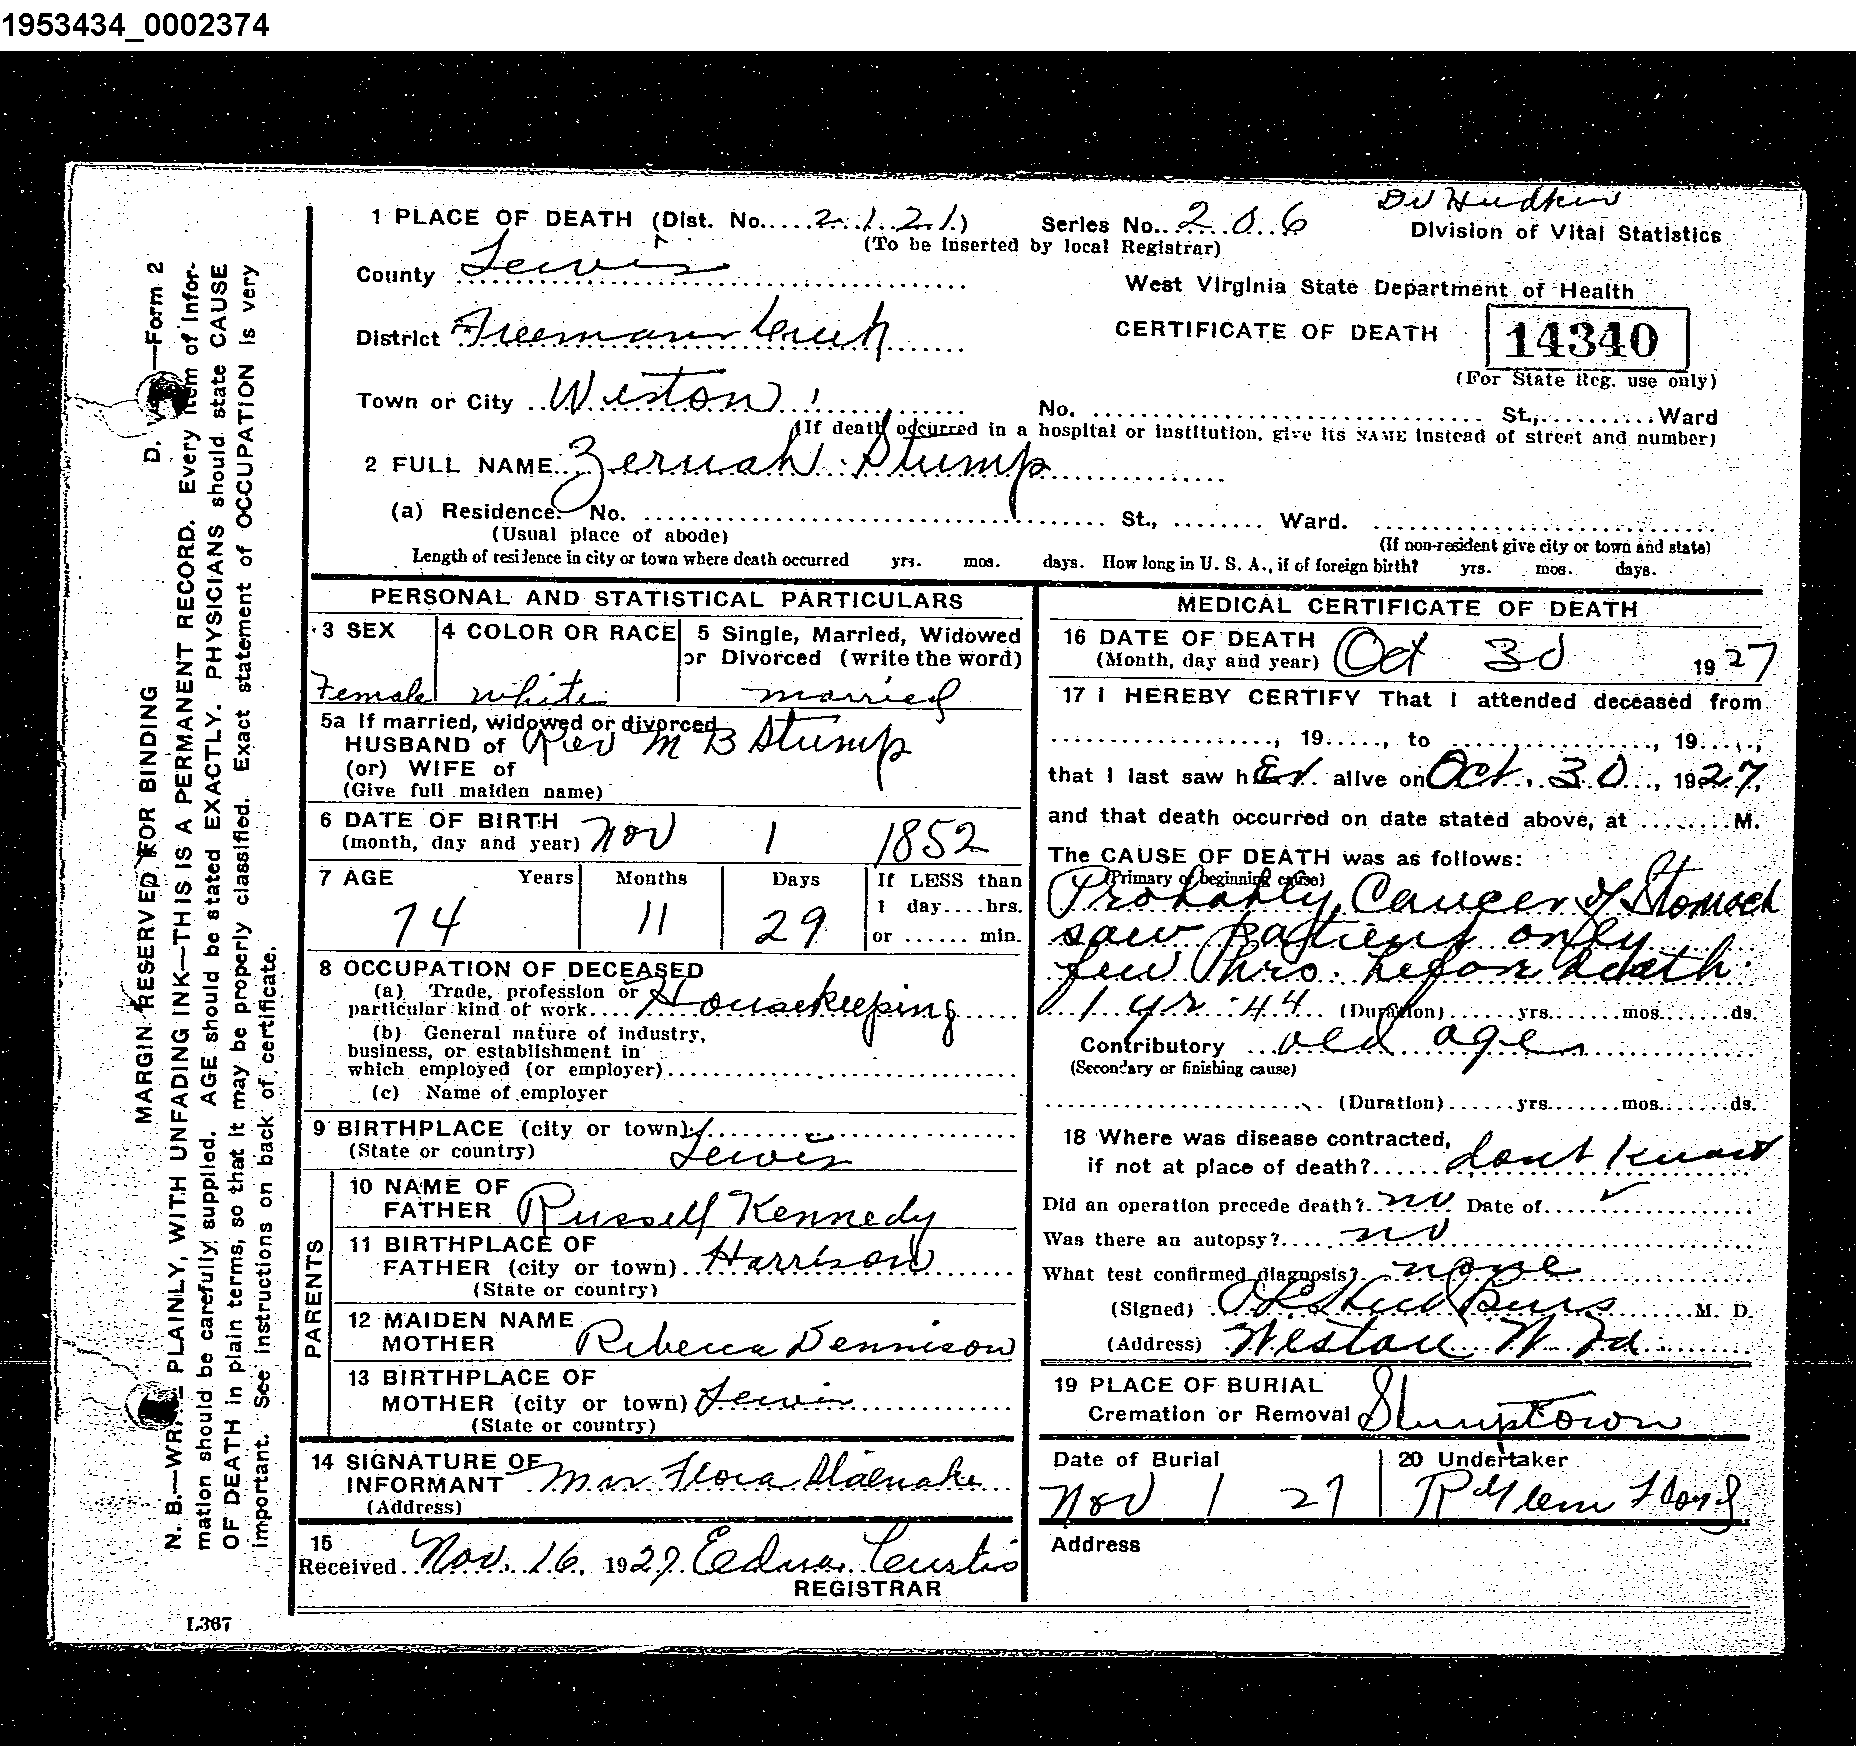 1953434_0002374
1 PLACE OF DEATH (Dist. No. 2121) Series No. 206
Division of Vital Statistics
(To be inserted by local Registrar)
County Lewis
West Virginia State Department of Health
District Freemans Creek
CERTIFICATE OF DEATH 14340
(For State Reg. use only)
Town or City Weston
No. St., Ward
(If death occurred in a hospital or institution, give its NAME instead of street and number)
2 FULL NAME Zeruah Stump
(a) Residence. No. St., Ward.
(Usual place of abode)
(If non-resident give city or town and state)
Length of residence in city or town where death occurred yrs. mos. days. How long in U. S. A., if of foreign birth? yrs. mos. days.
PERSONAL AND STATISTICAL PARTICULARS
3 SEX
Female
4 COLOR OR RACE
white
5 Single, Married, Widowed
or Divorced (write the word)
married
5a If married, widowed or divorced
HUSBAND of Rev M B Stump
(or) WIFE of
(Give full maiden name)
6 DATE OF BIRTH
(month, day and year) Nov 1 1852
7 AGE Years Months Days If LESS than
1 day....hrs.
74 11 29
or ...... min.
8 OCCUPATION OF DECEASED
(a) Trade, profession or
particular kind of work Housekeeping
(b) General nature of industry,
business, or establishment in
which employed (or employer)
(c) Name of employer
9 BIRTHPLACE (city or town)
(State or country) Lewis
PARENTS
10 NAME OF
FATHER Russell Kennedy
11 BIRTHPLACE OF
FATHER (city or town) Harrison
(State or country)
12 MAIDEN NAME
MOTHER Rebecca Dennison
13 BIRTHPLACE OF
MOTHER (city or town) Lewis
(State or country)
14 SIGNATURE OF
INFORMANT Mrs Flora
(Address)
15
Received Nov. 16, 1927 Edna Custis
REGISTRAR
MEDICAL CERTIFICATE OF DEATH
16 DATE OF DEATH
(Month, day and year) Oct 30 1927
17 I HEREBY CERTIFY That I attended deceased from
, 19....., to , 19.....,
that I last saw her alive on Oct. 30, 1927,
and that death occurred on date stated above, at M.
The CAUSE OF DEATH was as follows:
(Primary or beginning cause)
Probably Cancer of Stomach
saw patient only
few hrs. before death
1 yr 44 (Duration) yrs. mos. ds.
Contributory old age
(Secondary or finishing cause)
(Duration) yrs. mos. ds.
18 Where was disease contracted,
if not at place of death? dont know
Did an operation precede death? no Date of
Was there an autopsy? no
What test confirmed diagnosis? none
(Signed) M. D.
(Address) Weston W. Va
19 PLACE OF BURIAL
Cremation or Removal Stumptown
Date of Burial
Nov 1 27
20 Undertaker
R Glem Floyd
Address
D. —Form 2
MARGIN RESERVED FOR BINDING
N. B.—WRITE PLAINLY, WITH UNFADING INK—THIS IS A PERMANENT RECORD. Every item of infor-
mation should be carefully supplied. AGE should be stated EXACTLY. PHYSICIANS should state CAUSE
OF DEATH in plain terms, so that it may be properly classified. Exact statement of OCCUPATION is very
important. See instructions on back of certificate.
L367